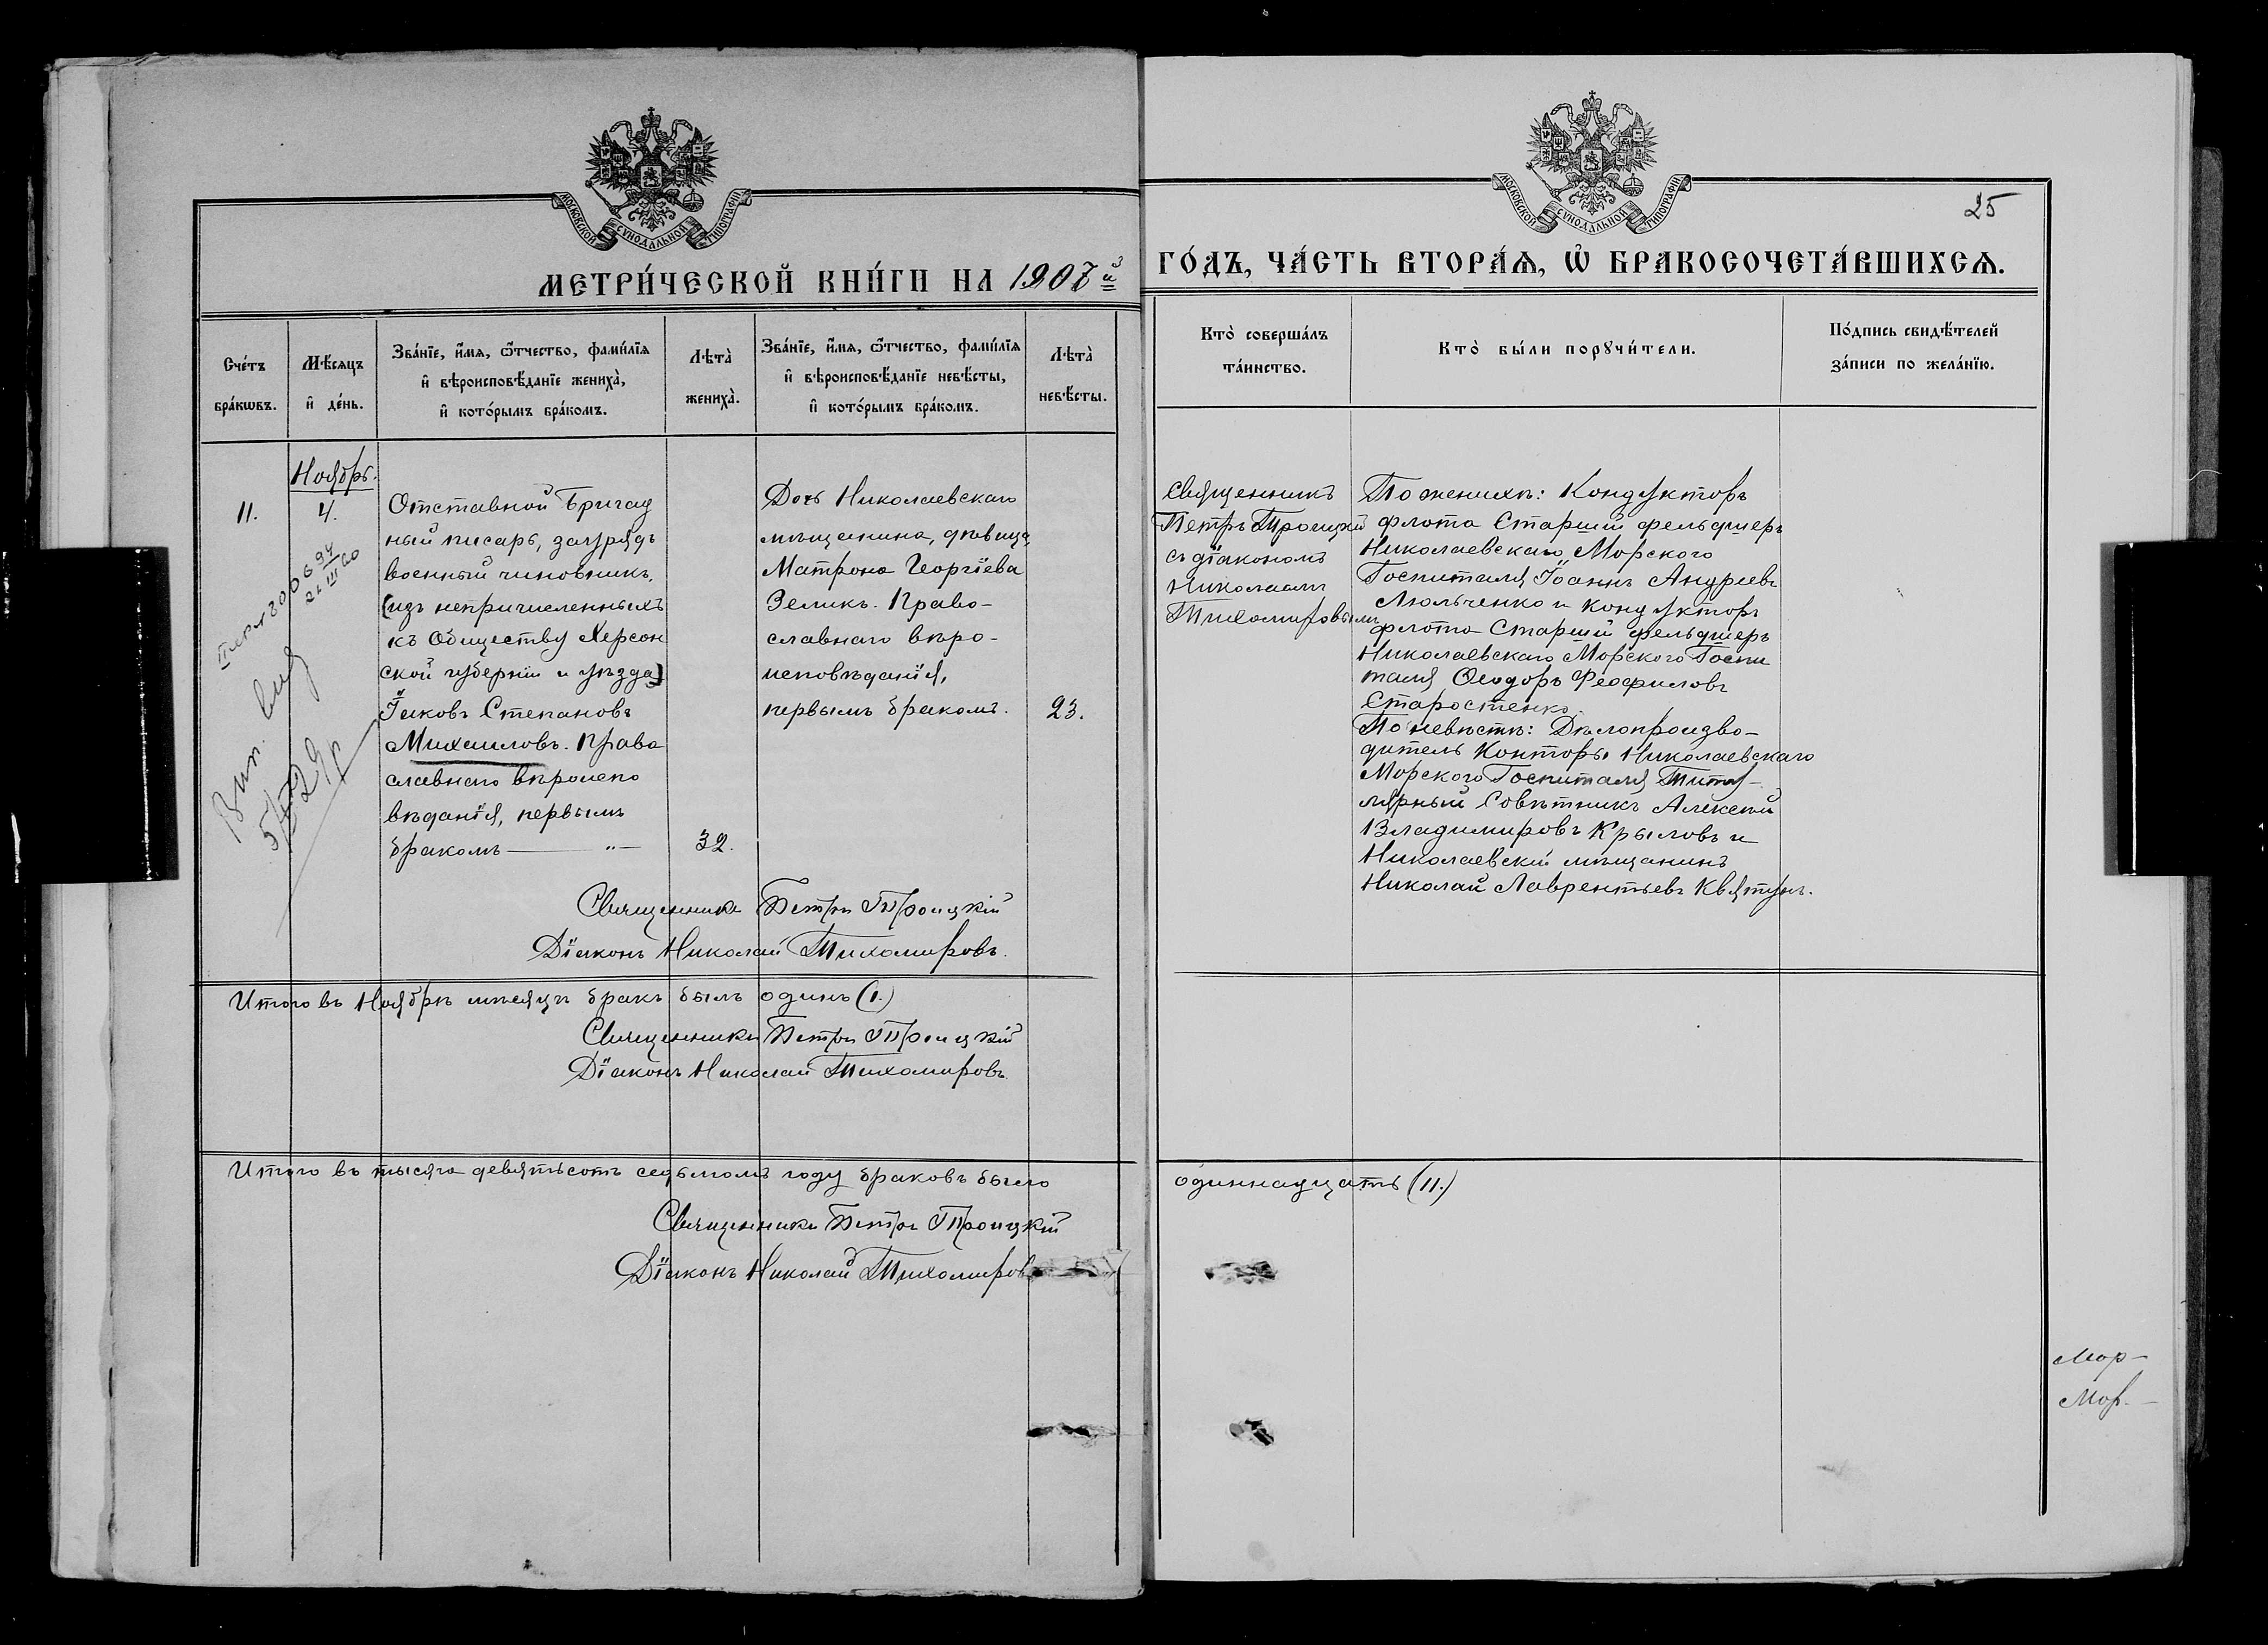 МОСКОВСКОЙ СѴНОДАЛЬНОЙ ТИПОГРАФІИ
МЕТРИ́ЧЕСКОЙ КНИ́ГИ НА 1907й
Сче́тъ бра́кωвъ.
Мѣ́сяцъ и҆ де́нь.
Зва́нїе, и҆́мя, ѻ҆́тчество, фами́лїя и҆ вѣроисповѣ́данїе жениха̀, и҆ кото́рымъ бра́комъ.
Лѣта̀ жениха̀.
Зва́нїе, и҆́мя, ѻ҆́тчество, фами́лїя и҆ вѣроисповѣ́данїе невѣ́сты, и҆ кото́рымъ бра́комъ.
Лѣта̀ невѣ́сты.
Ноябрь.
11.
4.
Отставной Бригад
ный писарь, заурядъ
военный чиновникъ,
(изъ непричисленныхъ
къ Обществу Херсон
ской губерніи и уѣзда)
Іаковъ Степановъ
Михаиловъ. Право
славнаго вѣроиспо
вѣданія, первымъ
бракомъ — " —
32.
Дочь Николаевскаго
мѣщанина, дѣвица
Матрона Георгіева
Великъ. Право-
славнаго вѣро-
исповѣданія,
первымъ бракомъ.
23.
Священникъ Петръ Троицкій
Діаконъ Николай Тихомировъ.
Итого въ Ноябрѣ мѣсяцѣ бракъ былъ одинъ (1.)
Священникъ Петръ Троицкій
Діаконъ Николай Тихомировъ
Итого въ тысяча девятьсотъ седьмомъ году браковъ было
Священникъ Петръ Троицкій
Діаконъ Николай Тихомировъ
МОСКОВСКОЙ СѴНОДАЛЬНОЙ ТИПОГРАФІИ
25
ГО́ДЪ, ЧА́СТЬ ВТОРА́Я, Ѽ БРАКОСОЧЕТА́ВШИХСЯ.
Кто̀ соверша́лъ та́инство.
Кто̀ бы́ли порꙋчи́тели.
По́дпись свидѣ́телей за́писи по жела́нїю.
Священникъ
Петръ Троицкій
съ діакономъ
Николаемъ
Тихомировымъ
По женихѣ: Кондукторъ
флота Старшій фельдшеръ
Николаевскаго Морского
Госпиталя Іоаннъ Андреевъ
Люльченко и кондукторъ
флота Старшій фельдшеръ
Николаевскаго Морского Госпи
таля Ѳеодоръ Феофиловъ
Старостенко.
По невѣстѣ: Дѣлопроизво-
дитель Конторы Николаевскаго
Морского Госпиталя Титу-
лярный Совѣтникъ Алексѣй
Владимировъ Крыловъ и
Николаевскій мѣщанинъ
Николай Лаврентьевъ Квятунъ.
одиннадцать (11.)
Мор-
Мор.-